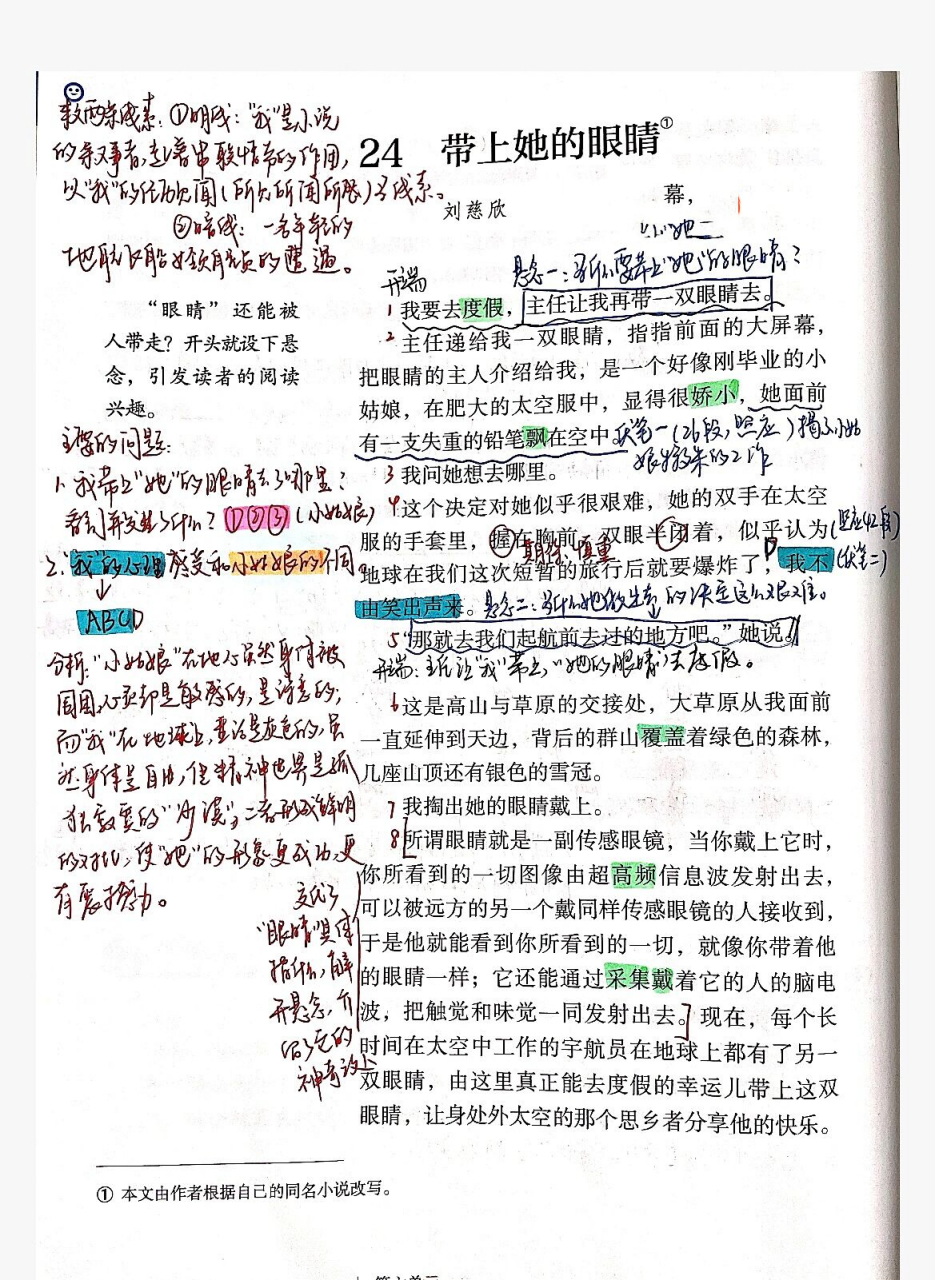 两条线索：①明线：“我”是小说
的叙事者，起着串联情节的作用，
以“我”的任所见闻（所见所闻所感）为线索。
②暗线：一名年轻的
地航飞船女领航员的遭遇。
24 带上她的眼睛①
刘慈欣
幕，
“小她”
“眼睛”还能被
人带走？开头就设下悬
念，引发读者的阅读
兴趣。
主要的问题：
1. 我带上“她”的眼睛去了哪里？
看到并发生了什么？①②③（小姑娘）
2. “我”的心理感受和小姑娘的不同。
↓
ABCD
分析：“小姑娘”在地心虽然身体被
围困，心灵却是敏感的，是诗意的；
而“我”在地球上，生活是灰色的，虽
然身体是自由，但精神世界是孤
独寂寞的“沙漠”，二者形成鲜明
的对比，使“她”的形象更成功，更
有震撼力。
交代了
“眼睛”具体
指什么，解
开悬念，介
绍了它的
神奇设
开端
悬念一：为什么要带上“她”的眼睛？
1 我要去度假，主任让我再带一双眼睛去。
2 主任递给我一双眼睛，指指前面的大屏幕，
把眼睛的主人介绍给我，是一个好像刚毕业的小
姑娘，在肥大的太空服中，显得很娇小，她面前
有一支失重的铅笔飘在空中。
伏笔一（26段，照应）揭示小姑
娘特殊的工作
3 我问她想去哪里。
4 这个决定对她似乎很艰难，她的双手在太空
服的手套里，握在胸前，双眼半闭着，似乎认为
（照应42段）
期待 慎重
地球在我们这次短暂的旅行后就要爆炸了，我不
（伏笔二）
由笑出声来。
悬念二：为什么她做出去的决定这么艰难。
5 “那就去我们起航前去过的地方吧。”她说。
开端：主任让“我”带上“她的眼睛”去度假。
6 这是高山与草原的交接处，大草原从我面前
一直延伸到天边，背后的群山覆盖着绿色的森林，
几座山顶还有银色的雪冠。
7 我掏出她的眼睛戴上。
8 所谓眼睛就是一副传感眼镜，当你戴上它时，
你所看到的一切图像由超高频信息波发射出去，
可以被远方的另一个戴同样传感眼镜的人接收到，
于是他就能看到你所看到的一切，就像你带着他
的眼睛一样；它还能通过采集戴着它的人的脑电
波，把触觉和味觉一同发射出去。现在，每个长
时间在太空中工作的宇航员在地球上都有了另一
双眼睛，由这里真正能去度假的幸运儿带上这双
眼睛，让身处外太空的那个思乡者分享他的快乐。
① 本文由作者根据自己的同名小说改写。